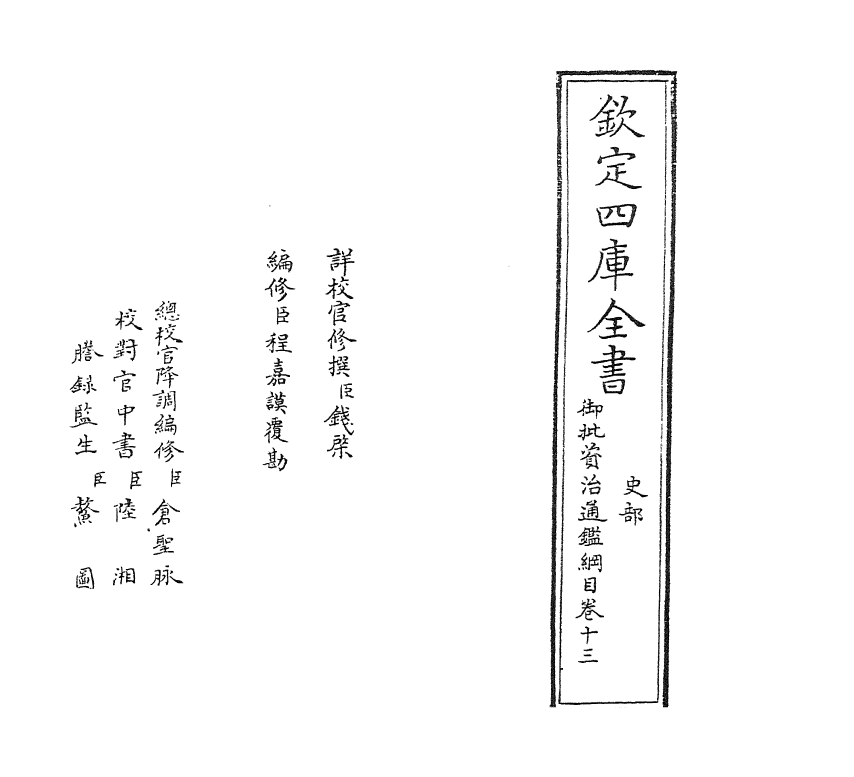 欽定四庫全書
史部
御批資治通鑑綱目卷十三
詳校官修撰臣錢棨
編修臣程嘉謨覆勘
總校官降調編修臣倉聖脉
校對官中書臣陸湘
謄録監生臣鰲圖